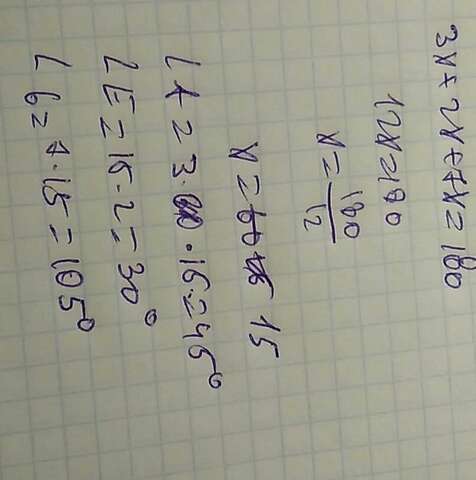 3x + 2x + 7x = 180
12x = 180
x = 180/12
x = 15
∠A = 3 · 15 = 45°
∠E = 15 · 2 = 30°
∠б = 7 · 15 = 105°